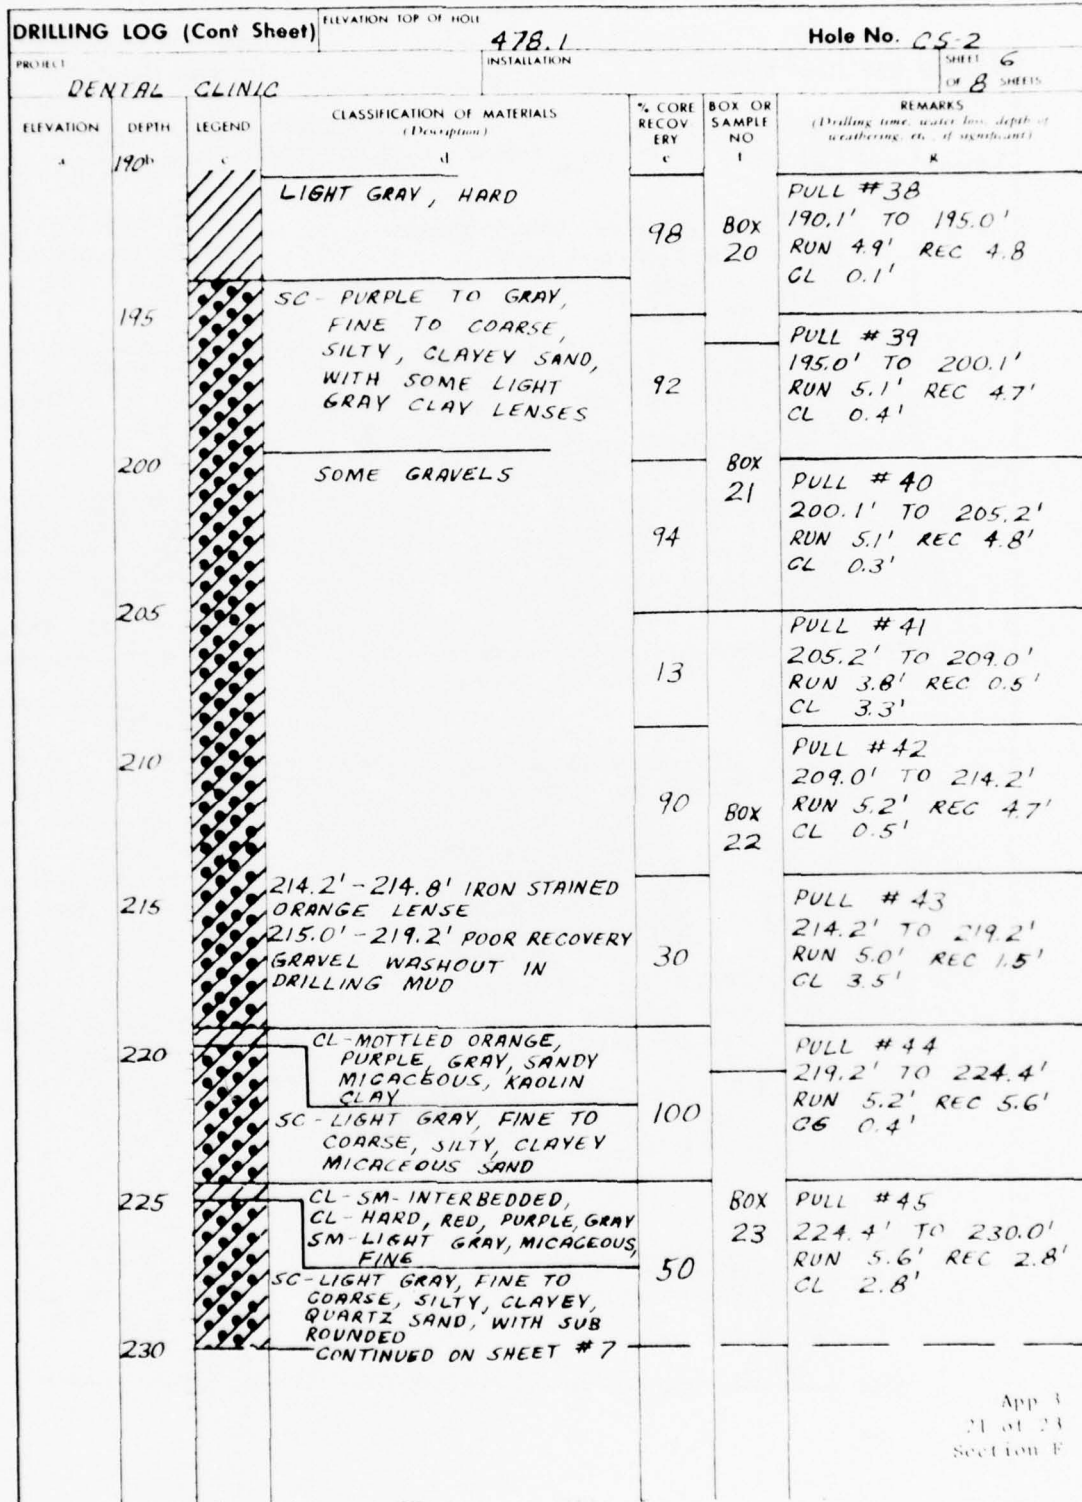 DRILLING LOG (Cont Sheet)
ELEVATION TOP OF HOLE
478.1
Hole No. CS-2
PROJECT
DENTAL CLINIC
INSTALLATION
SHEET 6
OF 8 SHEETS
ELEVATION
a
DEPTH
190b
LEGEND
c
CLASSIFICATION OF MATERIALS
(Description)
d
% CORE
RECOV-
ERY
e
BOX OR
SAMPLE
NO
f
REMARKS
(Drilling time, water loss, depth of
weathering, etc., if significant)
g
LIGHT GRAY, HARD
98
BOX
20
PULL #38
190.1' TO 195.0'
RUN 4.9' REC 4.8
CL 0.1'
195
SC - PURPLE TO GRAY,
FINE TO COARSE,
SILTY, CLAYEY SAND,
WITH SOME LIGHT
GRAY CLAY LENSES
92
PULL #39
195.0' TO 200.1'
RUN 5.1' REC 4.7'
CL 0.4'
200
SOME GRAVELS
BOX
21
94
PULL #40
200.1' TO 205.2'
RUN 5.1' REC 4.8'
CL 0.3'
205
13
PULL #41
205.2' TO 209.0'
RUN 3.8' REC 0.5'
CL 3.3'
210
90
BOX
22
PULL #42
209.0' TO 214.2'
RUN 5.2' REC 4.7'
CL 0.5'
215
214.2' - 214.8' IRON STAINED
ORANGE LENSE
215.0' - 219.2' POOR RECOVERY
GRAVEL WASHOUT IN
DRILLING MUD
30
PULL #43
214.2' TO 219.2'
RUN 5.0' REC 1.5'
CL 3.5'
220
CL - MOTTLED ORANGE,
PURPLE, GRAY, SANDY
MICACEOUS, KAOLIN
CLAY
SC - LIGHT GRAY, FINE TO
COARSE, SILTY, CLAYEY
MICACEOUS SAND
100
PULL #44
219.2' TO 224.4'
RUN 5.2' REC 5.6'
CG 0.4'
225
CL - SM - INTERBEDDED,
CL - HARD, RED, PURPLE, GRAY
SM - LIGHT GRAY, MICACEOUS,
FINE
SC - LIGHT GRAY, FINE TO
COARSE, SILTY, CLAYEY,
QUARTZ SAND, WITH SUB
ROUNDED
50
BOX
23
PULL #45
224.4' TO 230.0'
RUN 5.6' REC 2.8'
CL 2.8'
230
CONTINUED ON SHEET #7
App 3
21 of 23
Section F